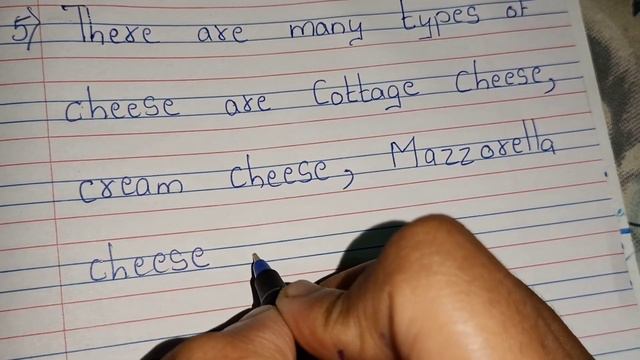 5) There are many types of
cheese are Cottage cheese,
cream cheese, Mazzorella
cheese